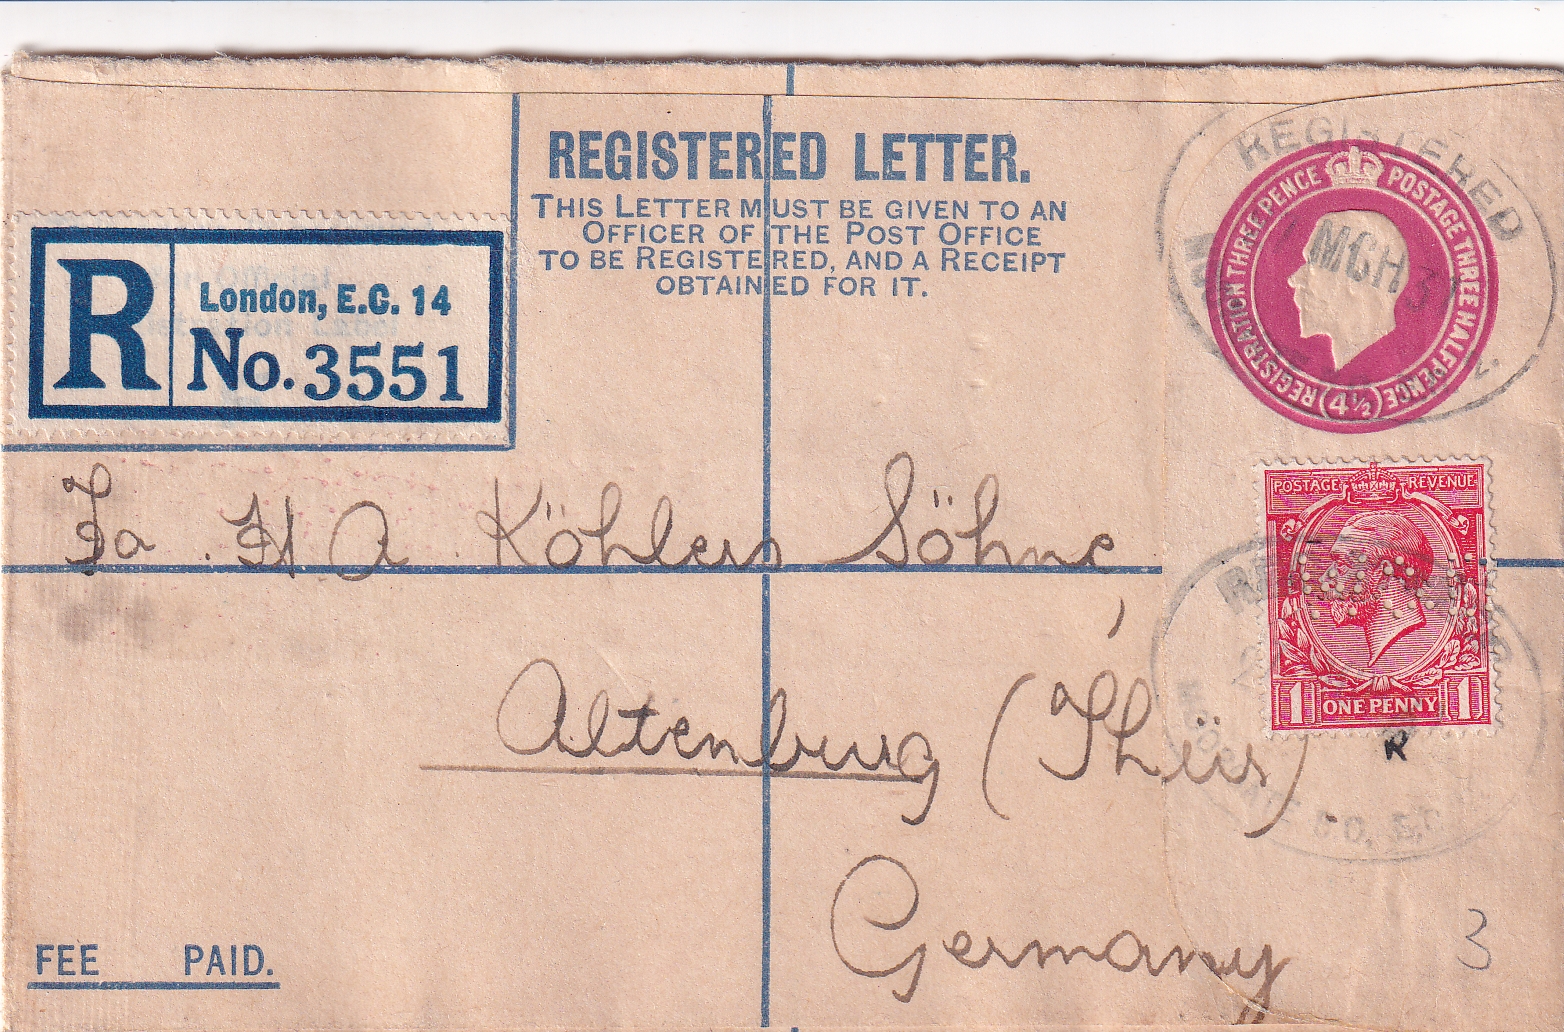 REGISTERED LETTER.
THIS LETTER MUST BE GIVEN TO AN
OFFICER OF THE POST OFFICE
TO BE REGISTERED, AND A RECEIPT
OBTAINED FOR IT.
R
London, E.C. 14
No. 3551
REGISTERED
MCH 31
REGISTRATION THREE PENCE POSTAGE THREE HALFPENCE
4½
Fa. H A Köhlers Söhne,
Altenburg (Thür)
Germany
POSTAGE REVENUE
1 ONE PENNY 1
K
3
FEE PAID.